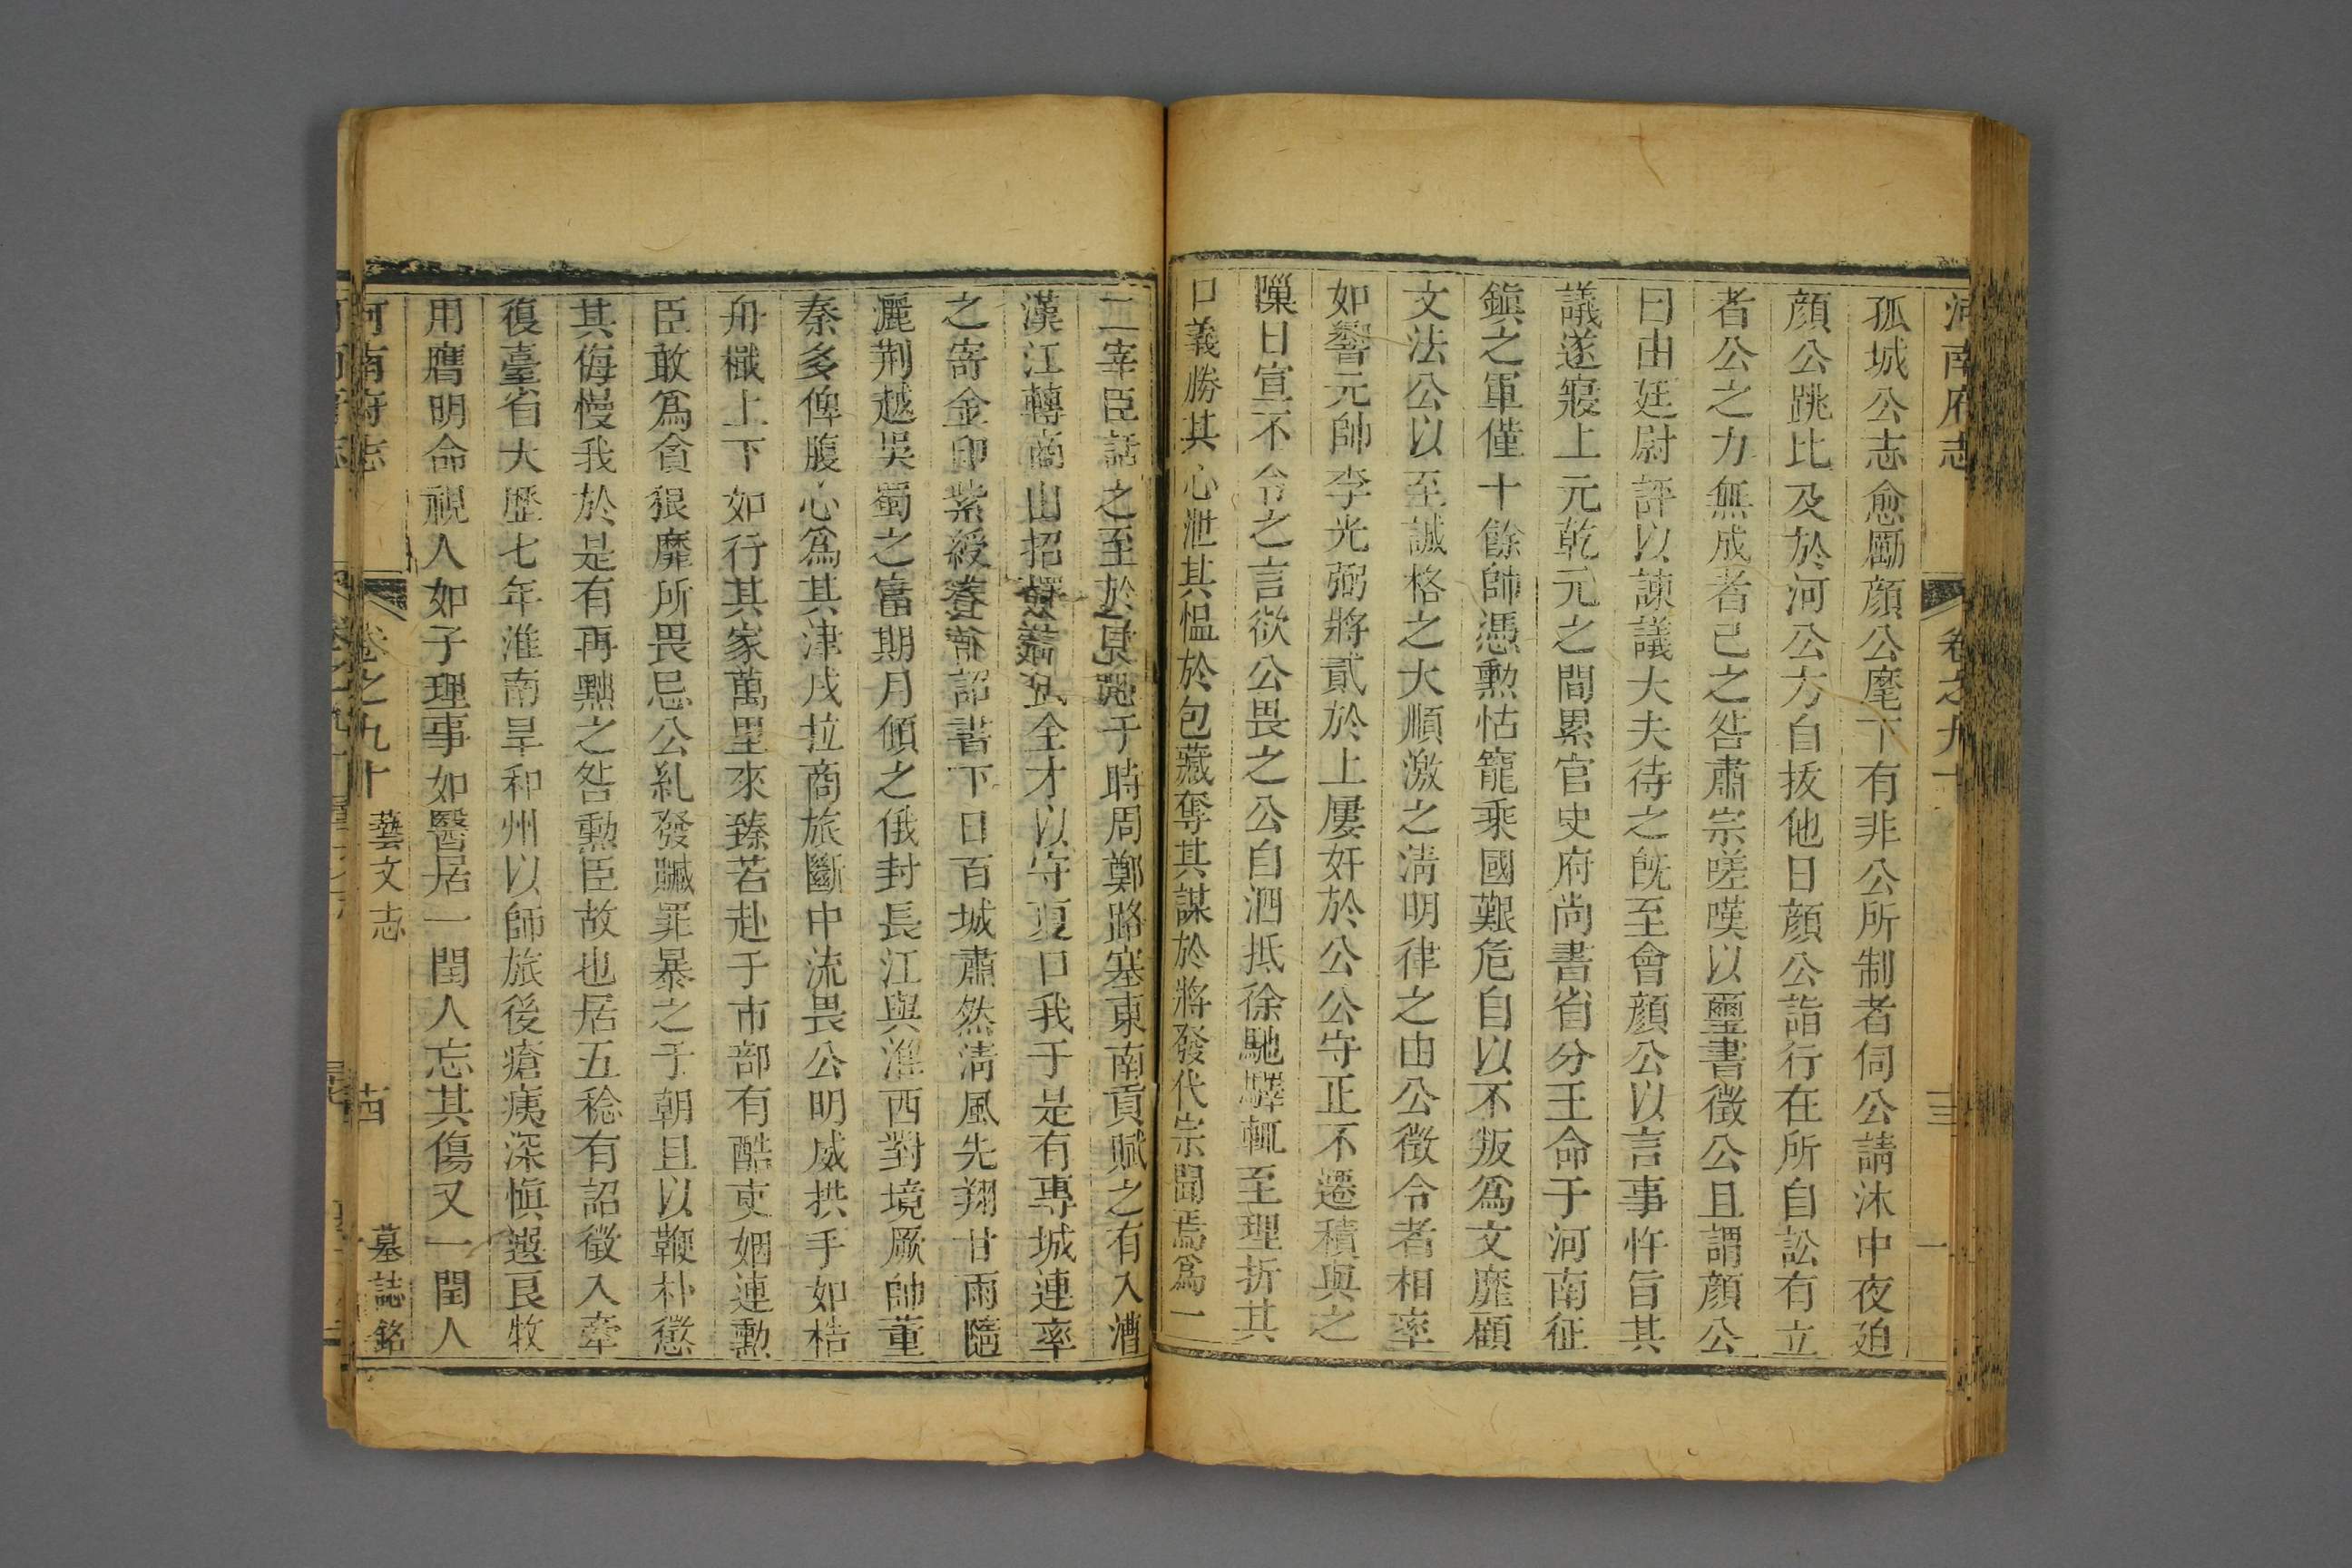 河南府志 卷之九十
孤城公志愈勵顔公麾下有非公所制者伺公請沐中夜廹
顔公跳比及於河公方自拔他日顔公詣行在所自訟有立
者公之力無成者己之咎肅宗嗟嘆以璽書徵公且謂顔公
曰由廷尉評以諫議大夫待之旣至會顔公以言事忤旨其
議遂寢上元乾元之間累官史府尚書省分王命于河南征
鎮之軍僅十餘帥憑勲怙寵乘國艱危自以不叛爲文靡顧
文法公以至誠格之大順激之淸明律之由公徴令者相率
如響元帥李光弼將貳於上屢奸於公公守正不遷積與之
隟日宣不令之言欲公畏之公自泗抵徐馳驛輒至理折其
口義勝其心泄其慍於包藏奪其謀於將發代宗聞焉爲一
二宰臣話之至於時周鄭路塞東南貢賦之有入漕
漢江轉商山招全才以守夏口我于是有專城連率
之寄金印紫綬詔書下日百城肅然淸風先翔甘雨隨
灑荆越吳蜀之富期月傾之俄封長江與淮西對境厥帥董
秦多俾腹心爲其津戌拉商旅斷中流畏公明威拱手如梏
舟檝上下如行其家萬里來臻若赴于市部有酷吏姻連勲
臣敢爲貪狠靡所畏忌公糺發贓罪暴之于朝且以鞭朴懲
其侮慢我於是有再黜之咎勲臣故也居五稔有詔徵入牽
復臺省大歷七年淮南旱和州以師旅後瘡痍深愼選良牧
用膺明命視人如子理事如醫居一閏人忘其傷又一閏人
河南府志 卷之九十 藝文志 墓誌銘